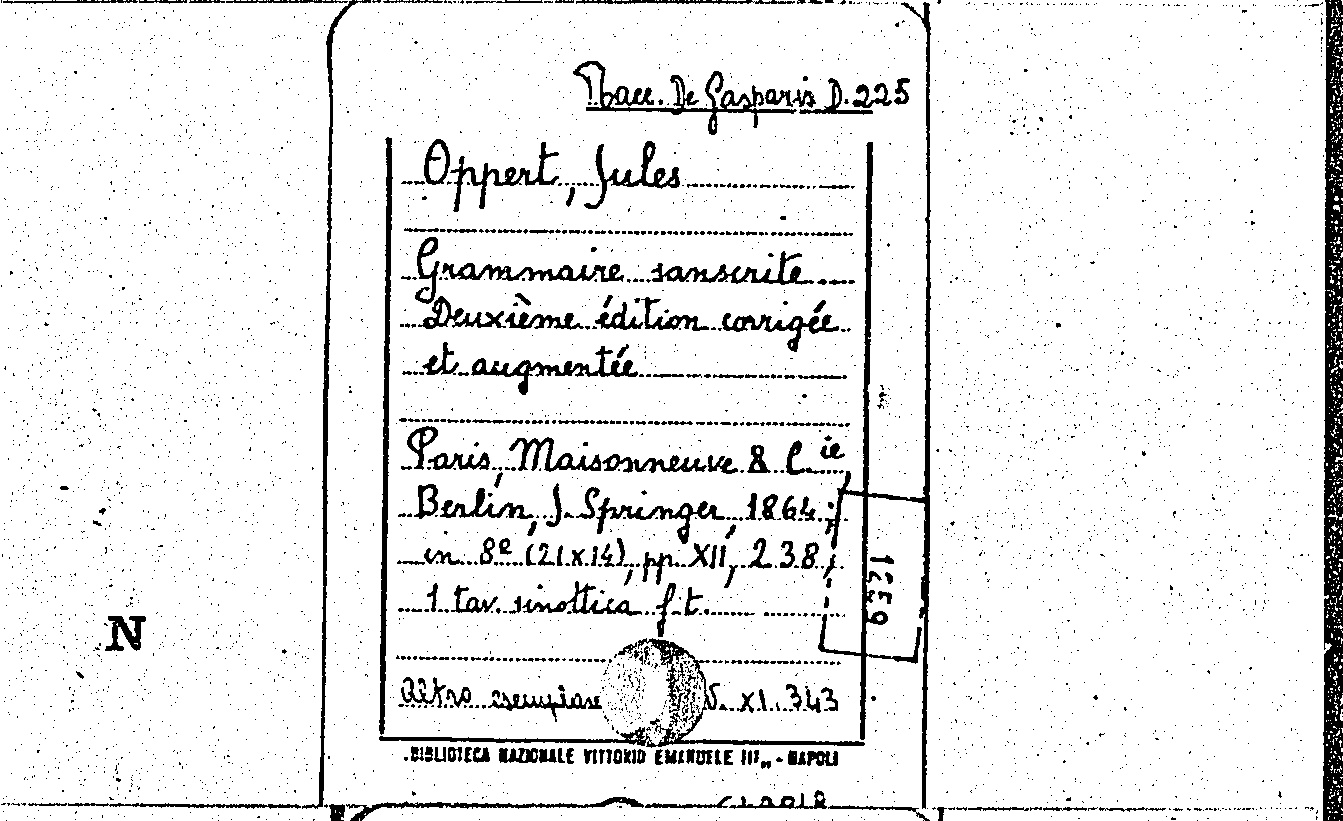 Racc. De Gasparis D. 225
Oppert, Jules
Grammaire sanscrite
Deuxième édition corrigée
et augmentée
Paris, Maisonneuve & C.ie,
Berlin, J. Springer, 1864;
in 8º (21x14), pp. XII, 238,
1 tav. sinottica f.t.
1259
N
Altro esemplare V. XI. 343
"BIBLIOTECA NAZIONALE VITTORIO EMANUELE III„ - NAPOLI